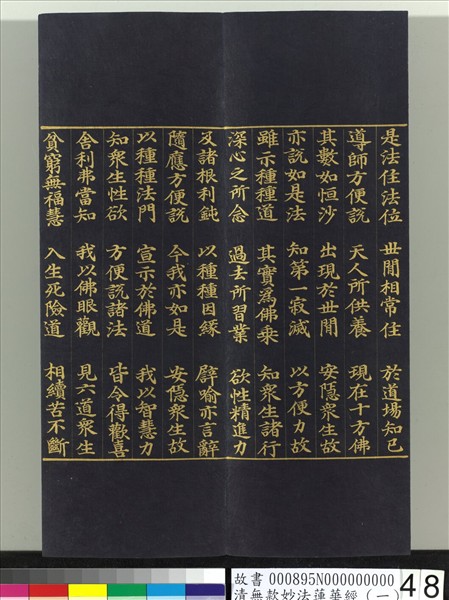 是法住法位　世間相常住　於道場知已
導師方便說　天人所供養　現在十方佛
其數如恒沙　出現於世間　安隱眾生故
亦說如是法　知第一寂滅　以方便力故
雖示種種道　其實為佛乘　知眾生諸行
深心之所念　過去所習業　欲性精進力
及諸根利鈍　以種種因緣　譬喻亦言辭
隨應方便說　今我亦如是　安隱眾生故
以種種法門　宣示於佛道　我以智慧力
知眾生性欲　方便說諸法　皆令得歡喜
舍利弗當知　我以佛眼觀　見六道眾生
貧窮無福慧　入生死險道　相續苦不斷
故書 000895N000000000
清無款妙法蓮華經（一）
48